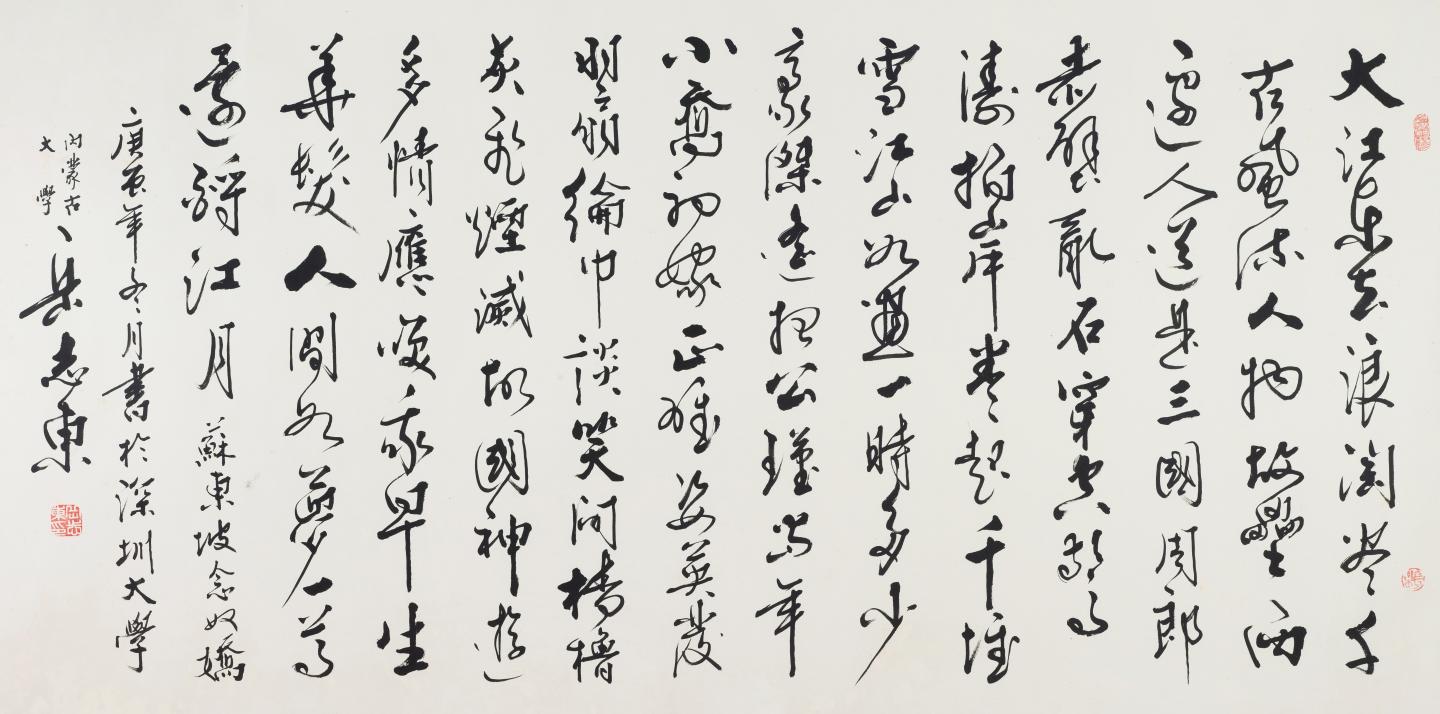 大江東去浪淘盡千
古風流人物故壘西
邊人道是三國周郎
赤壁亂石穿空驚
濤拍岸卷起千堆
雪江山如畫一時多少
豪傑遙想公瑾當年
小喬初嫁正雄姿英發
羽扇綸巾談笑間檣櫓
灰飛煙滅故國神遊
多情應笑我早生
華髮人間如夢一尊
還酹江月 蘇東坡念奴嬌
庚年冬月書於深圳大學
內蒙古
大學
志東